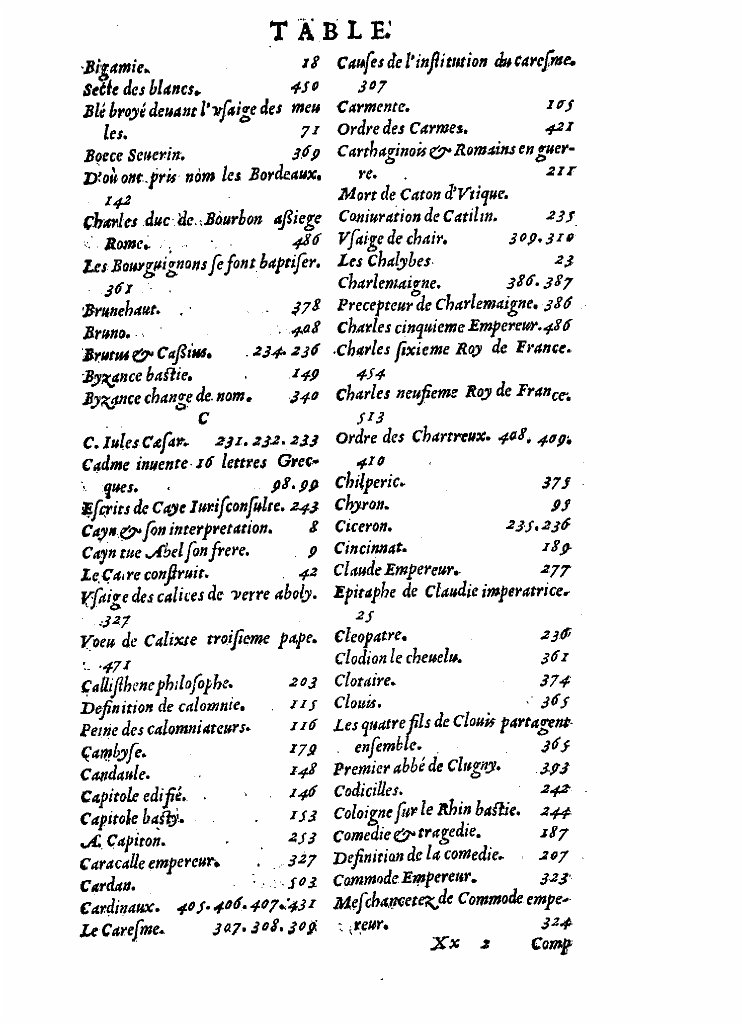 TABLE.
Bigamie. 18
Secte des blancs. 450
Blé broyé deuant l'vsaige des meu
les. 71
Boece Seuerin. 369
D'où ont pris nom les Bordeaux.
142
Charles duc de Bourbon aßiege
Rome. 486
Les Bourguignons se font baptiser.
361
Brunehaut. 378
Bruno. 408
Brutus & Caßius. 234. 236
Byzance bastie. 149
Byzance change de nom. 340
C
C. Iules Cæsar. 231. 232. 233
Cadme inuente 16 lettres Grec-
ques. 98. 99
Escrits de Caye Iurisconsulte. 243
Cayn & son interpretation. 8
Cayn tue Abel son frere. 9
Le Caire construit. 42
Vsaige des calices de verre aboly.
327
Voeu de Calixte troisieme pape.
471
Callisthene philosophe. 203
Definition de calomnie. 115
Peine des calomniateurs. 116
Cambyse. 179
Candaule. 148
Capitole edifié. 146
Capitole basty. 153
A. Capiton. 253
Caracalle empereur. 327
Cardan. 503
Cardinaux. 405. 406. 407. 431
Le Caresme. 307. 308. 309
Causes de l'institution du caresme.
307
Carmente. 105
Ordre des Carmes. 421
Carthaginois & Romains en guer-
re. 211
Mort de Caton d'Vtique.
Coniuration de Catilin. 235
Vsaige de chair. 309. 310
Les Chalybes 23
Charlemaigne. 386. 387
Precepteur de Charlemaigne. 386
Charles cinquieme Empereur. 486
Charles sixieme Roy de France.
454
Charles neufieme Roy de France.
513
Ordre des Chartreux. 408. 409.
410
Chilperic. 375
Chyron. 95
Ciceron. 235. 236
Cincinnat. 189
Claude Empereur. 277
Epitaphe de Claudie imperatrice.
25
Cleopatre. 236
Clodion le cheuelu. 361
Clotaire. 374
Clouis. 365
Les quatre fils de Clouis partagent
ensemble. 365
Premier abbé de Clugny. 393
Codicilles. 242
Coloigne sur le Rhin bastie. 244
Comedie & tragedie. 187
Definition de la comedie. 207
Commode Empereur. 323
Meschancetez de Commode empe-
reur. 324
Xx 2 Comp